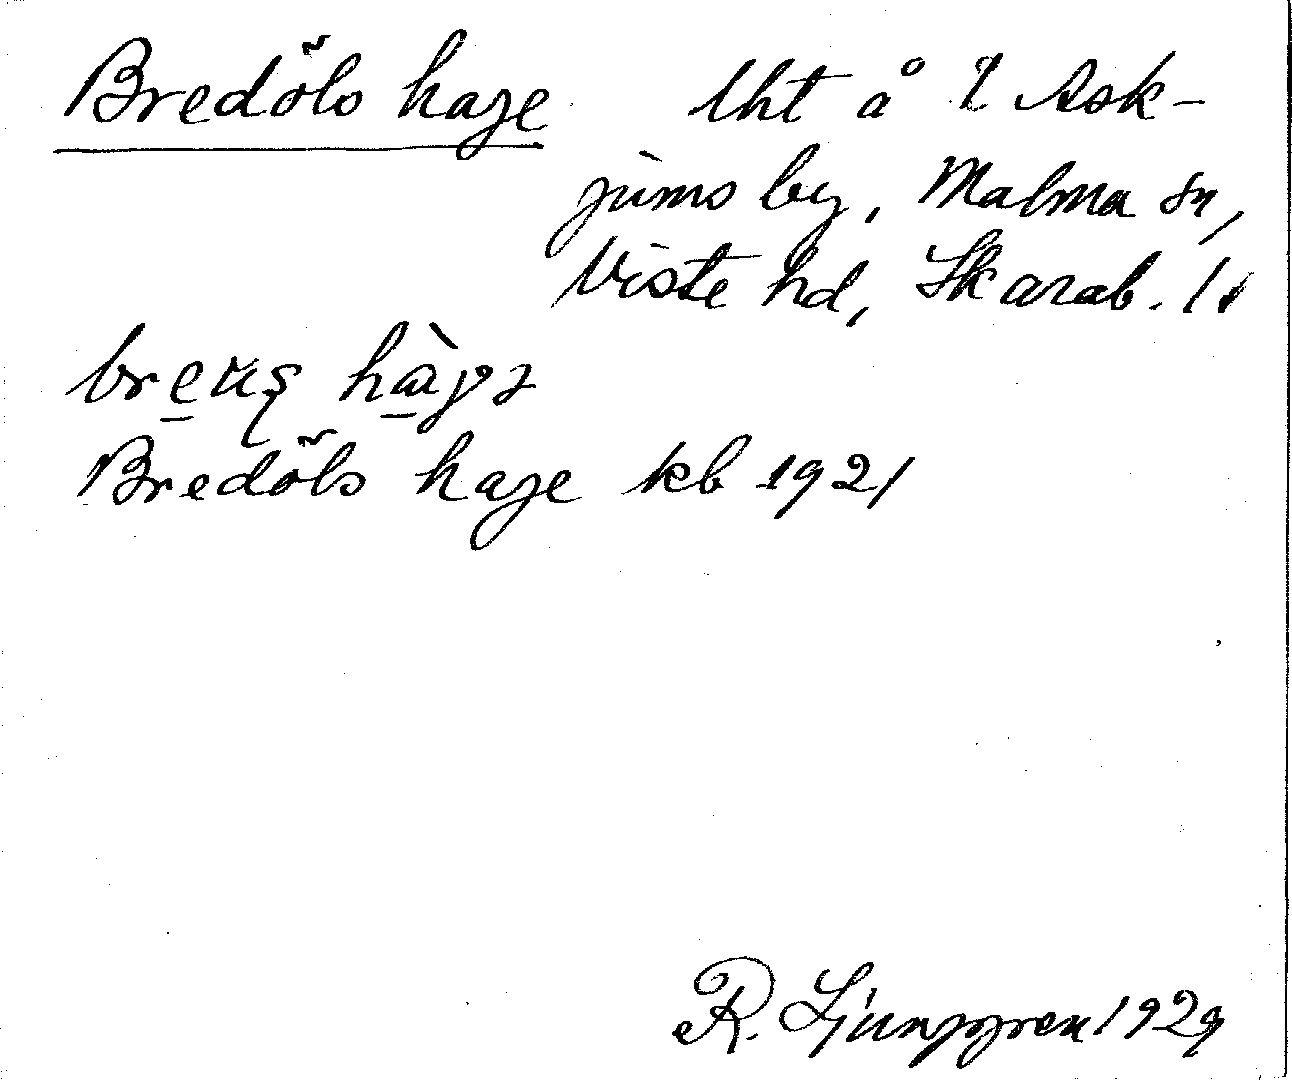 Bredöls haje lht å 2 Ask-
jums by, Malma sn,
Viste hd, Skarab. l
hàgə
Bredöls haje kb 1921
R. Ljunggren 1929